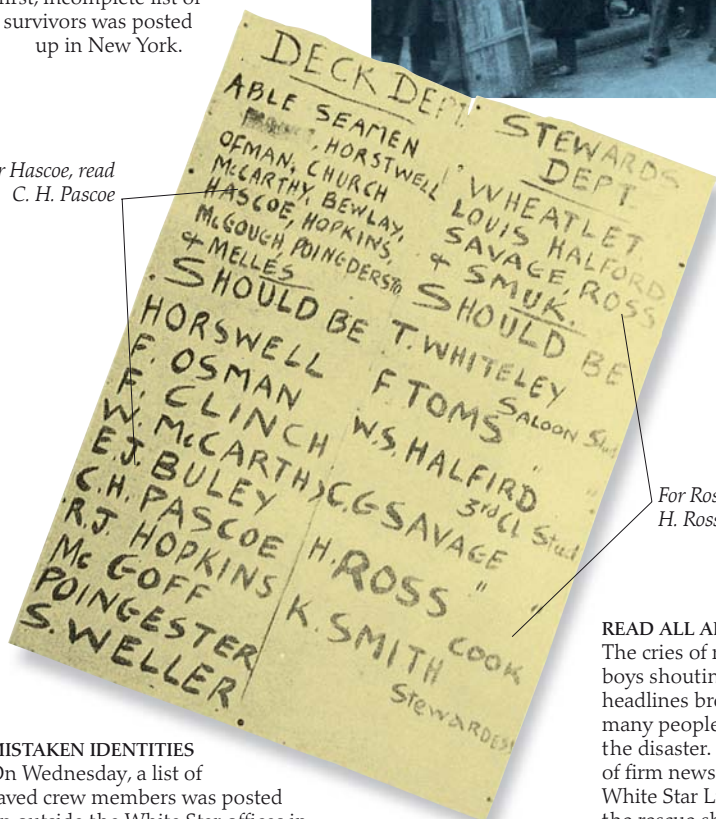 first, incomplete list of
survivors was posted
up in New York.
r Hascoe, read
C. H. Pascoe
DECK DEPT.
ABLE SEAMEN
, HORSTWELL
OFMAN, CHURCH
McCARTHY, BEWLAY,
HASCOE, HOPKINS,
McGOUGH, POINGDERSTO
& MELLES
SHOULD BE
HORSWELL
F. OSMAN
F. CLINCH
W. McCARTHY
E.J. BULEY
C.H. PASCOE
R.J. HOPKINS
Mc GOFF
POINGESTER
S. WELLER
STEWARDS
DEPT.
WHEATLET.
LOUIS HALFORD
SAVAGE, ROSS
& SMUK.
SHOULD BE
T. WHITELEY
F TOMS SALOON Stud
W.S. HALFIRD " "
C.G SAVAGE 3rd Cl Stud
H. ROSS " "
K. SMITH COOK
Stewardess
For Ros
H. Ross
MISTAKEN IDENTITIES
On Wednesday, a list of
aved crew members was posted
outside the White Star offices in
READ ALL A
The cries of
boys shoutin
headlines br
many people
the disaster.
of firm news
White Star L
the rescue sh